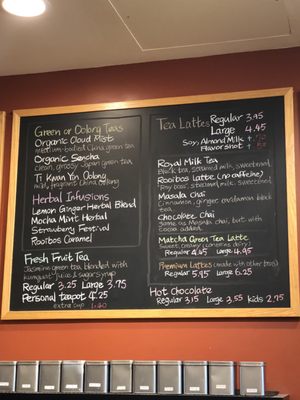 Green or Oolong Teas
Organic Cloud Mists
medium-bodied China green tea
Organic Sencha
clean, grassy Japan green tea
Ti Kwan Yin Oolong
mild, fragrant China oolong
Herbal Infusions
Lemon Ginger Herbal Blend
Mocha Mint Herbal
Strawberry Festival
Rooibos Caramel
Fresh Fruit Tea
Jasmine green tea blended with
kumquat juice & sugar syrup
Regular 3.25 Large 3.75
Personal teapot 4.25
extra cup
Tea Lattes Regular 3.95
Large 4.45
Soy, Almond Milk +
Flavor Shot +
Royal Milk Tea
Black tea, steamed milk, sweetened
Rooibos Latte (no caffeine)
steamed milk, sweetened
Masala Chai
Cinnamon, ginger cardamom black
tea
Chocolate Chai
Same as Masala Chai, but with
cocoa added
Matcha Green Tea Latte
Sweet, creamy (contains dairy)
Regular 4.45 Large 4.95
Premium Lattes (made with other teas)
Regular 5.95 Large 6.25
Hot Chocolate
Regular 3.15 Large 3.55 kids 2.75